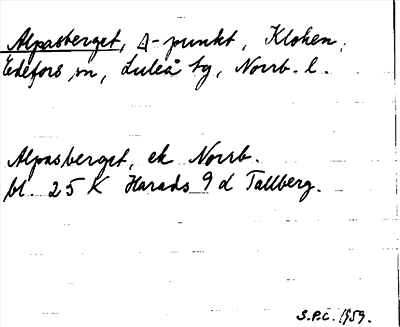 Alpasberget, Δ-punkt, Kloken,
Edefors sn, Luleå tg, Norrb. l.
Alpasberget, ek Norrb.
bl. 25 K Harads 9 d Tallberg.
S.P.C. 1959.